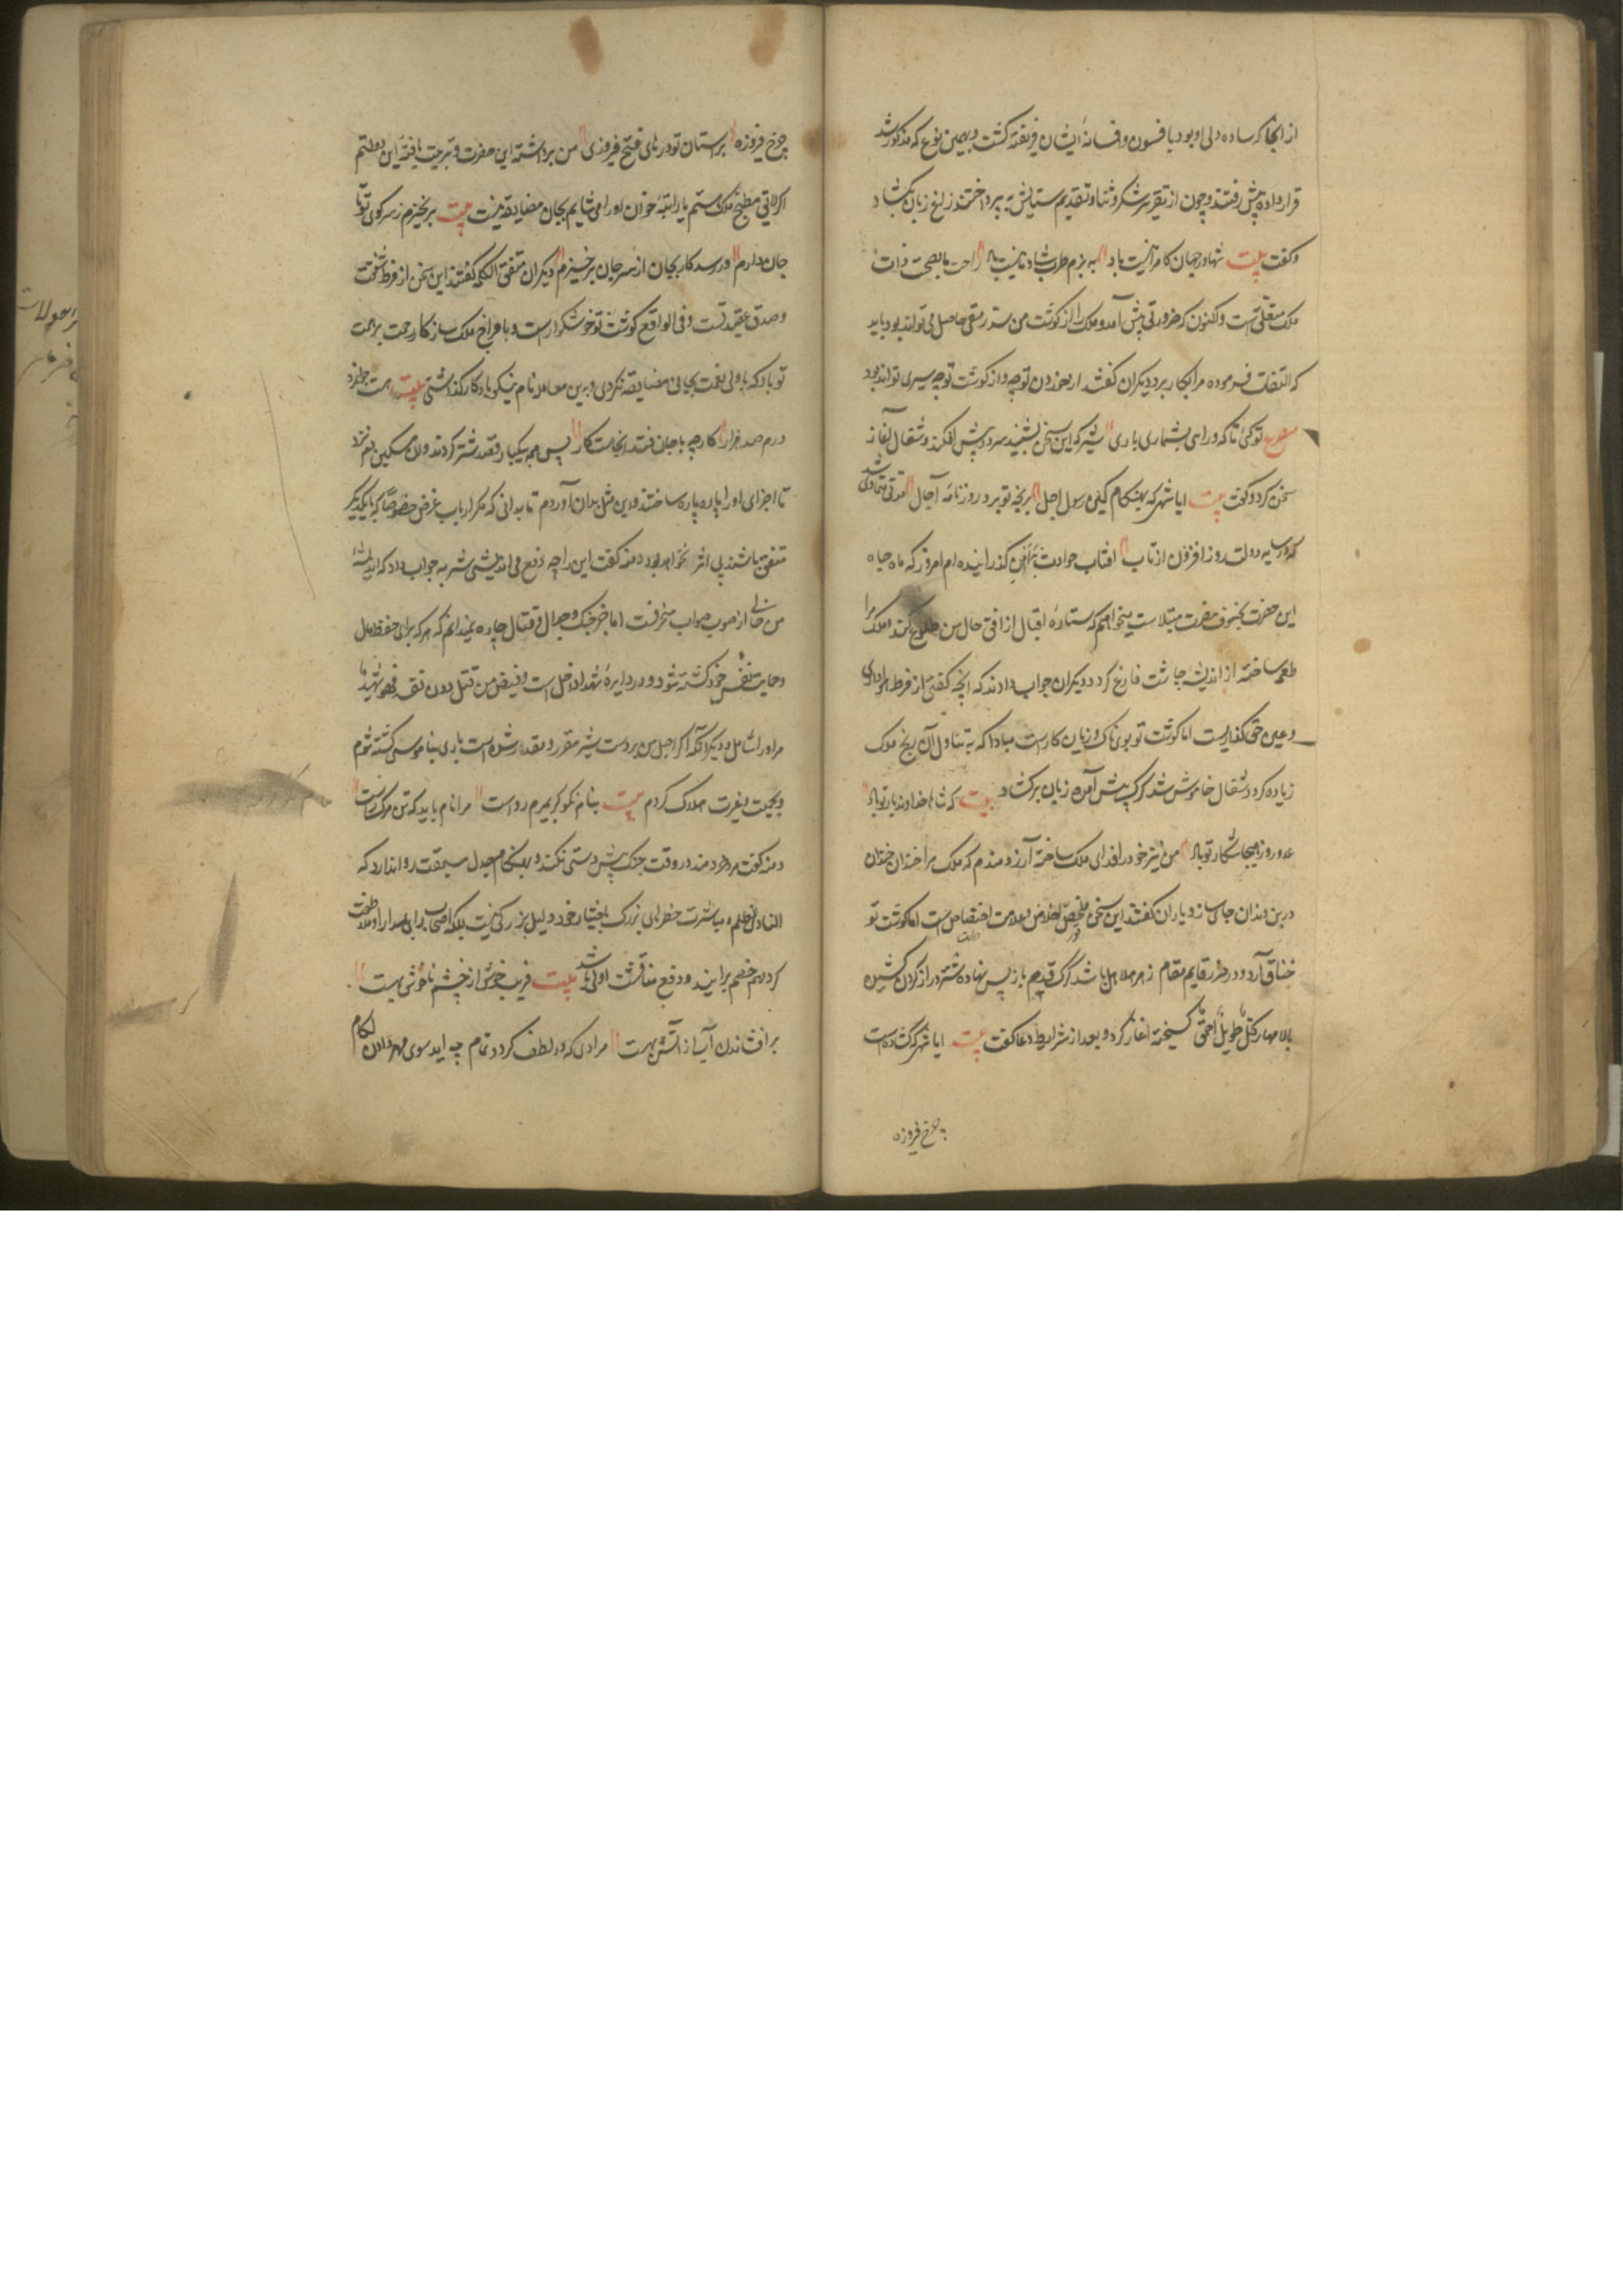 از آنجا که ساده دلی او بود با فسون و افسانه ایشان فریفته گشت و بهمین نوع که مذکور شد
قرار داده پیش رفتند و چون از تقریر شکر و ثنا و تقدیم ستایش به پرداختند زاغ زبان بکشاد
و گفت بیت شها در جهان کامرانیت باد به بزم طرب شادمانیت باد راحت ما بصحت ذات
ملک متعلق است و اکنون که ضرورتی پیش آمد و ملک را از گوشت من سد رمقی حاصل می تواند بود باید
که التفات فرموده مرا بکار برد دیگران گفتند از خوردن تو چه و از گوشت تو چه سیری تواند بود
مصرع تو کی تا که در راهی بشماری باری شیر که این سخن بشنید سر در پیش افکند و شغال آغاز
سخن کرد و گفت بیت ایا شهی که بهنگام کین رسول اجل تو برد روزنامه آجال مدتی متمادی شد
که در سایه دولت روز افزون از تاب آفتاب حوادث گذرانیده ام امروز که ماه جاه
این حضرت بخسوف مضرت مبتلاست میخواهم که ستاره اقبال از افق حال من طلوع کند و ملک مرا
طعمه ساخته از اندیشه چاشت فارغ گردد دیگران جواب دادند که آنچه گفتی از فرط هواداری
و عین حق گذاریست اما گوشت تو بوی ناک و زیان کار است مبادا که به تناول آن رنج ملک
زیاده گردد شغال خاموش شد گرگ پیش آمده زبان برکشاد بیت که شاها خداوند یار تو باد
عدو روز هیجا شکار تو باد من نیز خود را فدای ملک ساخته آرزومندم که ملک مرا خندان خندان
در بن دندان جای سازد یاران گفتند این سخن محض اخلاص و علامت اختصاص است اما گوشت تو
خناق آرد و در ضرر قایم مقام زهر هلاهل باشد گرگ قدم باز پس نهاد و شتر دراز گردن کشیده
بالا مهار گسیخته آغاز کرد و بعد از شرایط دعا گفت بیت ایا شه که گشاده است
چرخ فیروزه
چرخ فیروزه بر آستان تو درهای فتح و فیروزی من برداشته این حضرت و تربیت یافته این دولتم
اگر لایق مطبخ ملک هستم یا راتبه خوان او را می شایم بجان مضایقه نیست بیت برنخیزم ز سر کوی تو تا
جان دارم ور رسد کار بجان از سر جان برخیزم دیگران متفق الکلمه گفتند این سخن از فرط شفقت
و صدق عقیدت است و فی الواقع گوشت تو خوشگوار است و با مزاج ملک سازگار رحمت بر همت
تو باد که با ولی نعمت بجانی مضایقه نکردی و بدین معامله نام نیکو یادگار گذاشتی بیت هست جوانمرد
درم صد هزار کار چو با جان فتد آنجاست کار پس همه بیکبار قصد شتر کردند و آن مسکین دم نزد
تا اجزای او را پاره پاره ساختند و این مثل بدان آوردم تا بدانی که مکر ارباب غرض خصوصا که با یکدیگر
متفق باشند بی اثر نخواهد بود دمنه گفت این را چه دفع می اندیشی شنزبه جواب داد که اندیشه
من حالی از صوب صواب منحرفست اما جز جنگ و جدال و قتال چاره نمیدانم که هر که برای حفظ مال
و حمایت نفس خود کشته شود در دایره شهدا داخل است و فیض من قتل دون نفسه فهو شهید
مر او را شامل و دیگر آنکه اگر اجل من بر دست شیر مقرر و مقدر شده است باری بناموسی کشته شوم
و بحمیت و غیرت هلاک گردم بیت بنام نکو گر بمیرم رواست مرا نام باید که تن مرگ راست
دمنه گفت مرد خردمند در وقت جنگ پیش دستی نکند و بهنگام جدل سبقت روا ندارد که
البادی اظلم و مباشرت خطرهای بزرگ باختیار خود دلیل بزرگی نیست بلکه اصحاب رای بمدارا و ملاطفت
گرد هم خصم برآیند و دفع مناقشت اولی باشد بیت فریب خوش از خشم ناخوش بهست
برافشاندن آب از آتش بهست مرادی که در لطف گردد تمام چه آید سوی
لگام